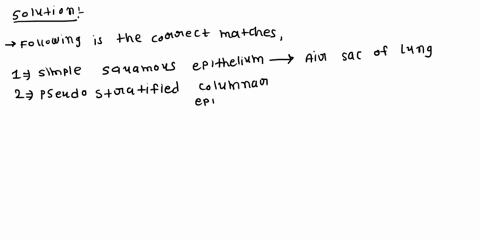 Solution:-
→ Following is the correct matches,
1⇒ simple squamous epithelium → Air sac of lung
2⇒ pseudo stratified columnar
epi